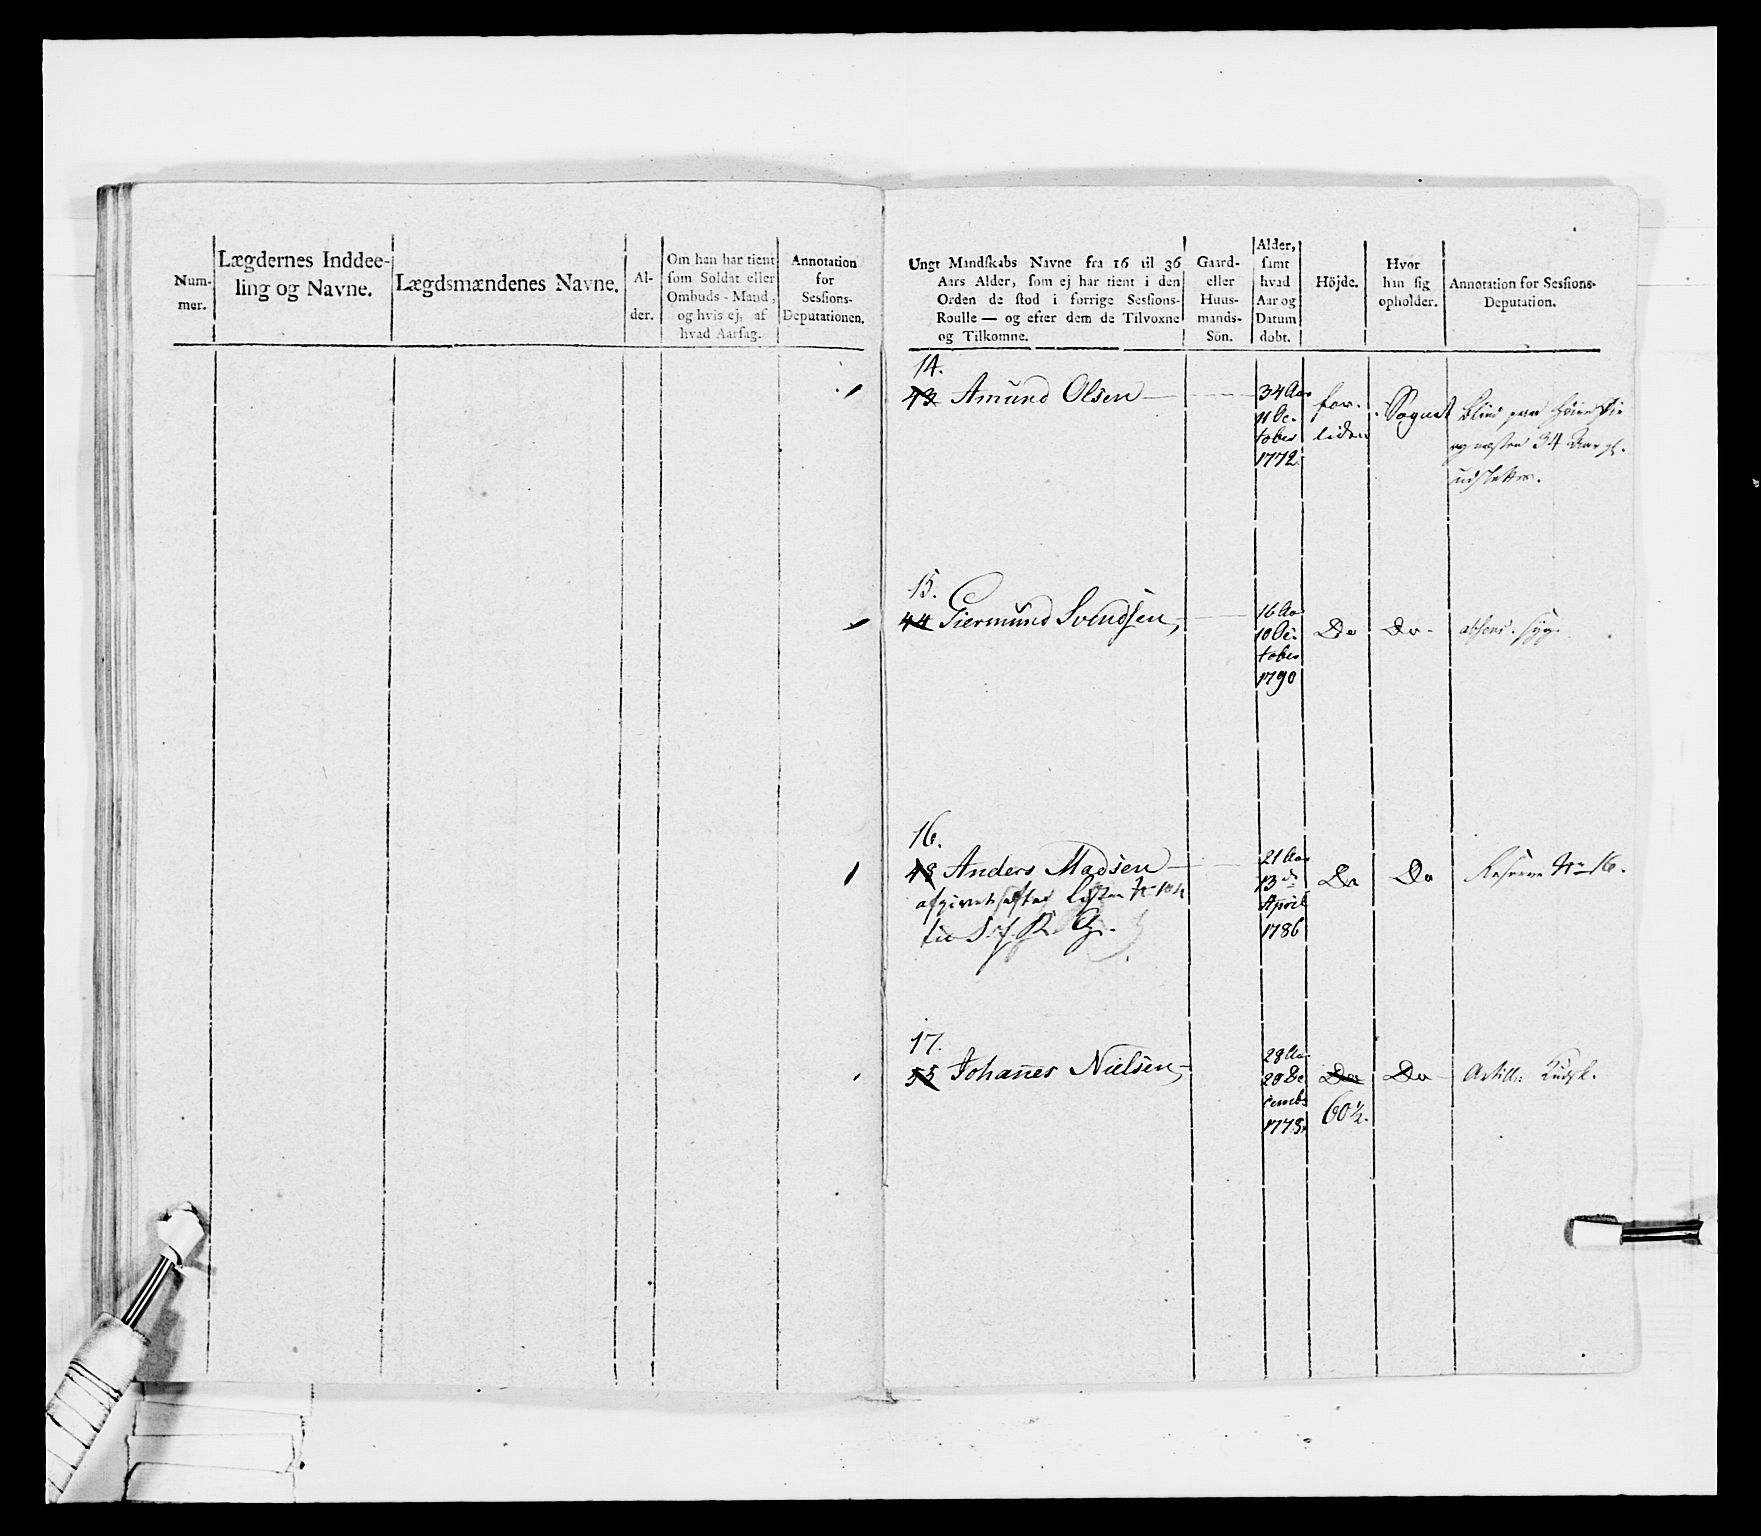 Num-
mer.
Lægdernes Inddee-
ling og Navne.
Lægdsmændenes Navne.
Al-
der.
Om han har tient
som Soldat eller
Ombuds-Mand,
og hvis ej, af
hvad Aarsag.
Annotation
for
Sessions-
Deputationen.
Ungt Mandskabs Navne fra 16 til 36
Aars Alder, som ej har tient i den
Orden de stod i forrige Sessions-
Roulle — og efter dem de Tilvoxne
og Tilkomne.
Gaard-
eller
Huus-
mands-
Sön.
Alder,
samt
hvad
Aar og
Datum
döbt.
Höjde.
Hvor
han sig
opholder.
Annotation for Sessions-
Deputation.
14.
43 Amund Olsen
34 Aar
11 Oc-
tober
1772.
for-
liden
Sognet
Blind paa Höire
og næsten 34 Aar gl.
udslettes.
15.
44 Giermund Svendsen,
16 Aar
10 Oc-
tober
1790
Do
Do
absent. syg.
16.
48 Anders Madsen
afgivet efter Listen No 104
til
21 Aar
13 d.
April
1786
Do
Do
Reserve No 16.
17.
55 Johañes Nielsen,
28 Aar
20 De
cembr
1778.
Do
60 ½.
Do
Artill: Kudsk.